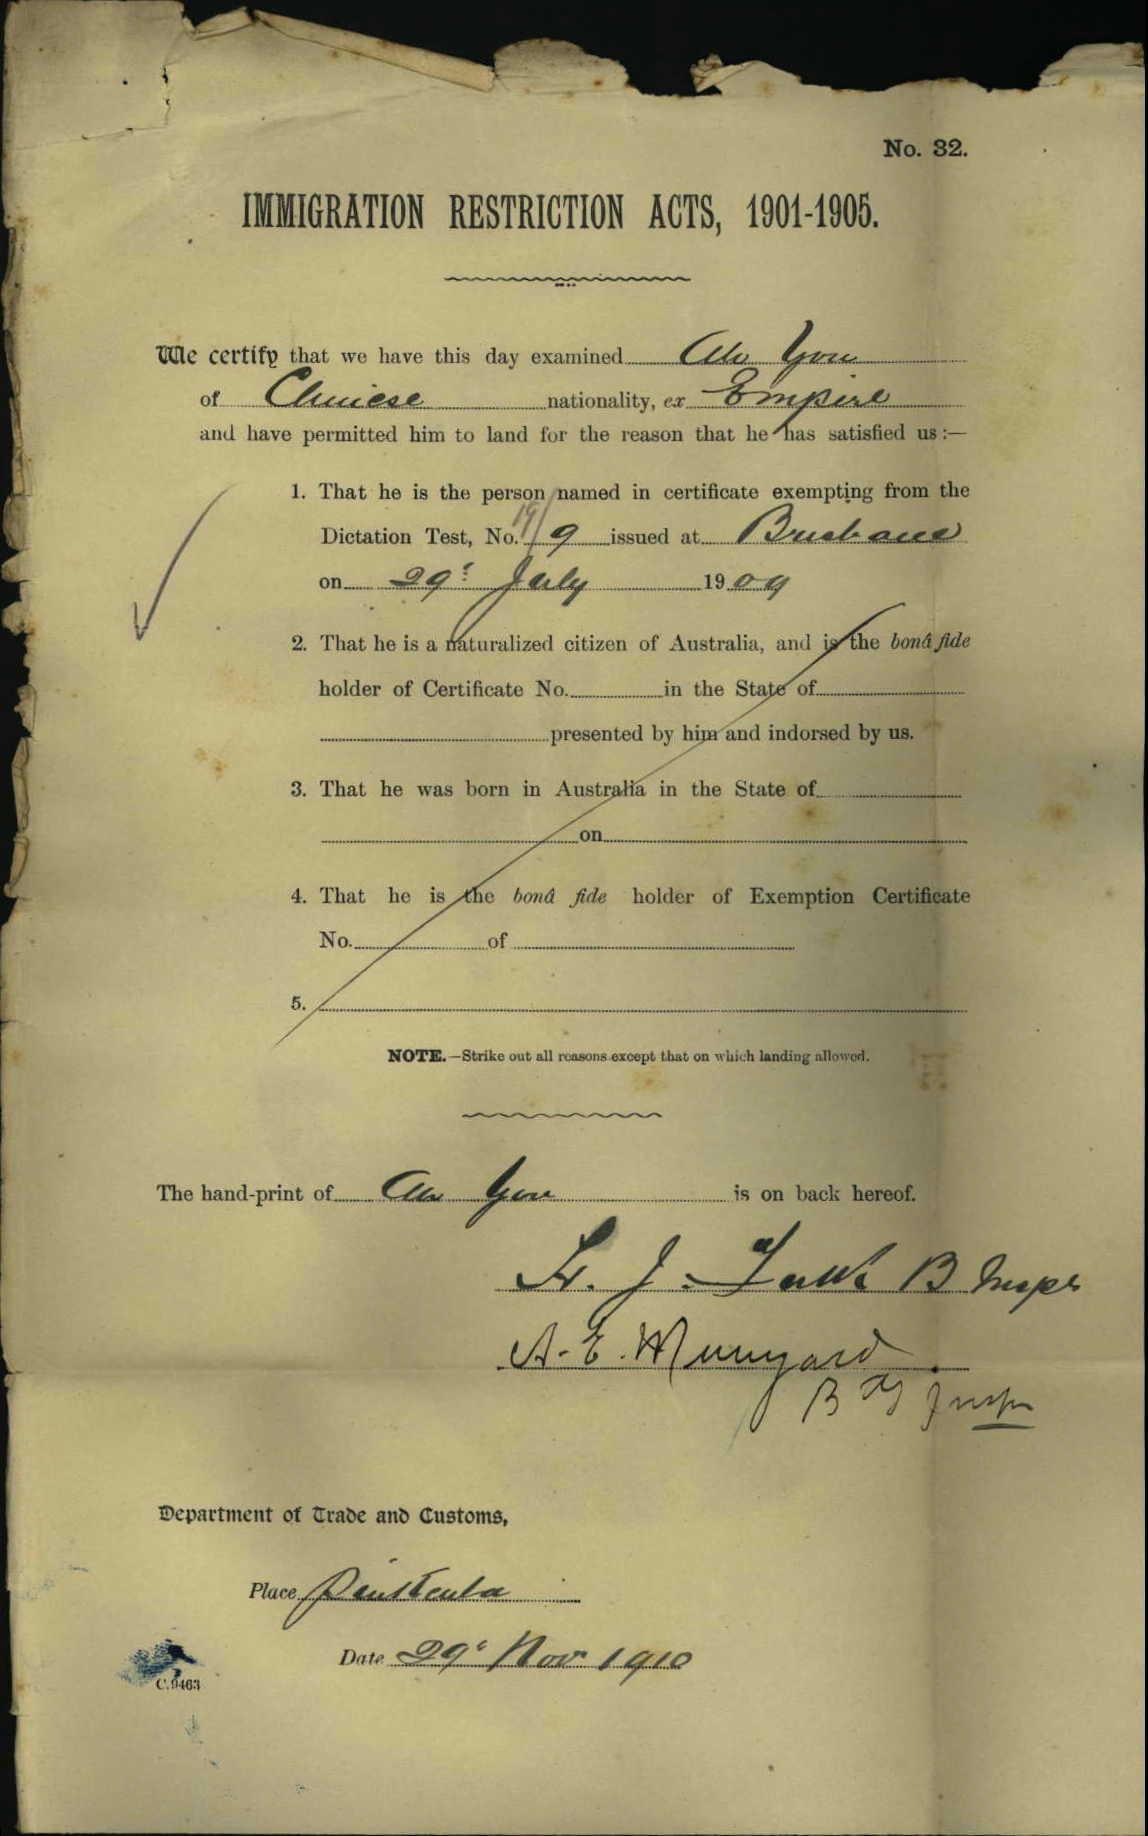 No. 32.
IMMIGRATION RESTRICTION ACTS, 1901-1905.
We certify that we have this day examined Ah You
of Chinese nationality, ex Empire
and have permitted him to land for the reason that he has satisfied us :—
1. That he is the person named in certificate exempting from the
Dictation Test, No. 19/9 issued at Brisbane
on 29th July 1909
2. That he is a naturalized citizen of Australia, and is the bonâ fide
holder of Certificate No. in the State of
presented by him and indorsed by us.
3. That he was born in Australia in the State of
on
4. That he is the bonâ fide holder of Exemption Certificate
No. of
5.
NOTE.—Strike out all reasons except that on which landing allowed.
The hand-print of Ah You is on back hereof.
J.
A. E.
Department of Trade and Customs,
Place
Date 29 Nov 1910
C.9463